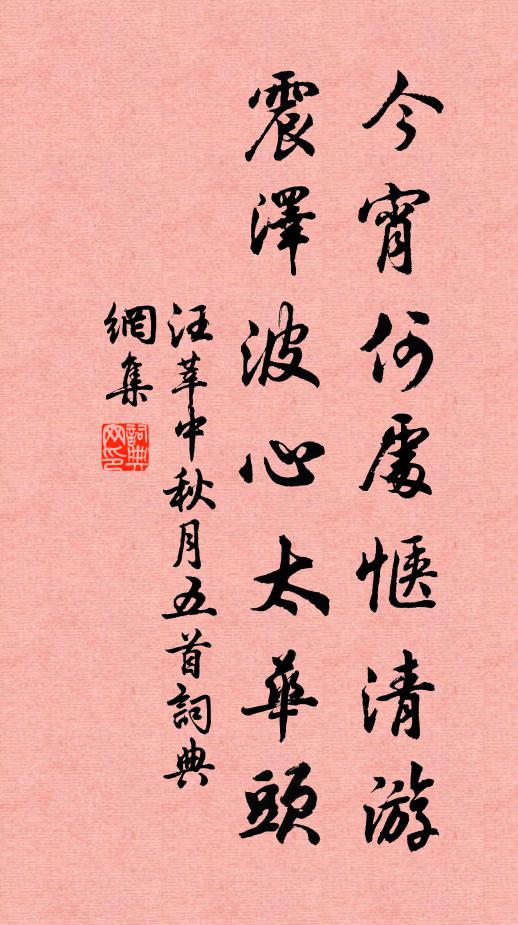 今宵何處愜清游
震澤波心太華頭
汪莘中秋月五首詞典
網集
詞典網印